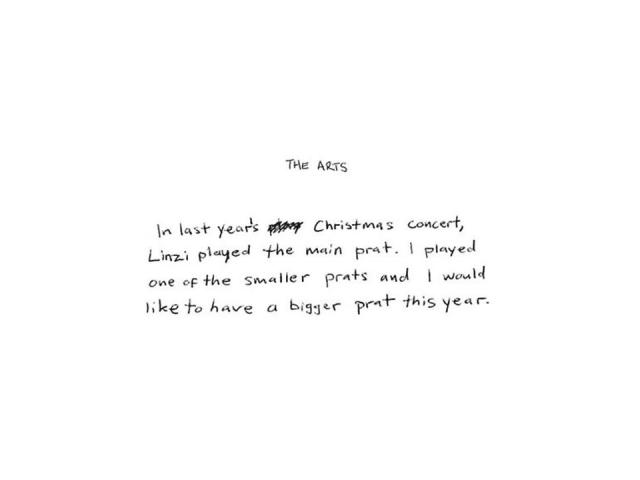 THE ARTS
In last year's Christmas concert,
Linzi played the main prat. I played
one of the smaller prats and I would
like to have a bigger prat this year.